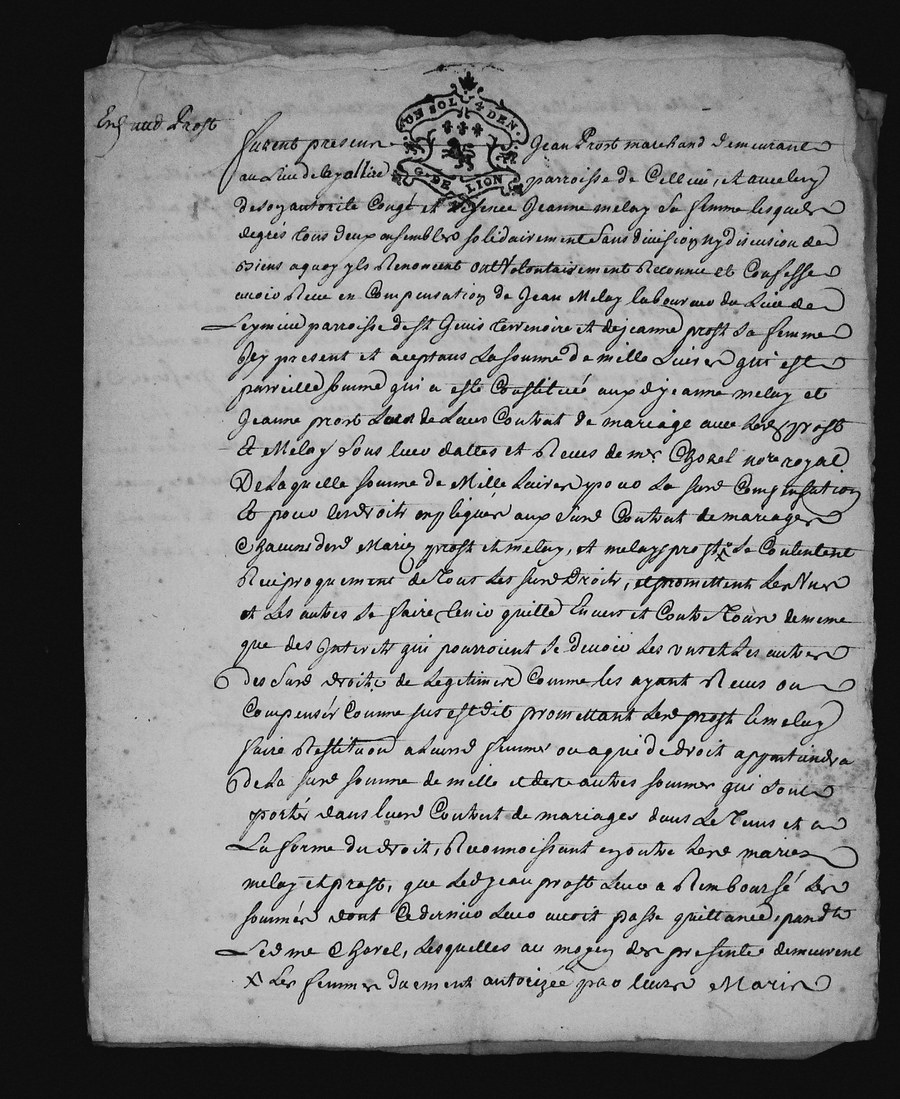 UN SOL 4 DEN.
G. DE LION
Prost
furent presens Jean Prost marchand demeurant
au lieu de parroisse de Cellieu, et avec luy
de soy autorité Congé et Jeanne melay Sa femme lesquels
degrés tous deux ensembles solidairement sans division ny discusion de
Biens a quoy yls Renoncent ont Volontairement Reconnu et Confessé
avoir Reçu en Compensation de Jean Melay laboureur du Lieu de
Leymieu parroisse de St Genis terrenoire et de jeanne prost Sa femme
Icy present et aceptans La somme de mille Livres qui est
pareille somme qui a esté Constitué aux d jeanne melay et
Jeanne prost Lors de Leurs Contrat de mariage avec lesd prost
Et Melay sous leur dattes et Receus de mr Chorel nore royal
De Laquelle somme de Mille Livres pour La susd Compensation
Et pour les droits expliqués aux susd Contrat de mariages
Chacuns desd Mariez prost et melay, et melay prost x Se Contentent
Reciproquement de Tout Les susd Droits, et promettent Les Uns
et Les autres Se faire tenir quitte Envers et Contre Tous de meme
que des Interets qui pourroient Se devoir Les uns et Les autres
des susd droits de Legitimes Comme les ayant Receus ou
Compensés Comme sus est dit promettant Lesd prost et melay
faire Restitution a Leursd femmes ou a qui de droit appartiendra
de La susd somme de mille et des autres sommes qui Sont
portés dans leurd Contrat de mariages dans Le Tems et a
La forme du droit, Reconnoissant en outre Lesd maries
melay et prost, que Led jean prost Leur a Remboursé Les
sommes dont Ce dernier Leur avoit passe quittance, pardt
Led me Chorel, Lesquelles au moyen des presentes demeurent
x Les femmes duement autorizée par leurs Maris